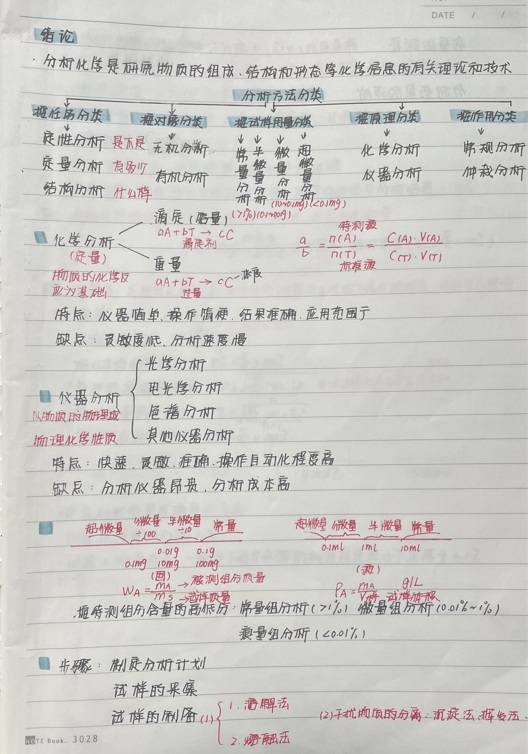 DATE / /
绪论
· 分析化学是研究物质的组成、结构和形态等化学信息的有关理论和技术
分析方法分类
按任务分类 按对象分类 按试样用量分类 按原理分类 按作用分类
定性分析 是不是 无机分析 常量分析 半微量分析 微量分析 超微量分析 化学分析 常规分析
定量分析 有多少 有机分析 仪器分析 仲裁分析
结构分析 什么样
(10~0.1mg) (<0.1mg)
滴定(容量)
aA + bT → cC
滴定剂
化学分析
(定量)
物质的化学反应为基础
重量
aA + bT → cC
过量
a/b = n(A)/n(T) = C(A)·V(A)/C(T)·V(T)
待测液
标准液
特点: 仪器简单、操作简便、结果准确、应用范围广
缺点: 灵敏度低、分析速度慢
仪器分析
以物质的物理或
物理化学性质
光学分析
电化学分析
色谱分析
其他仪器分析
特点: 快速、灵敏、准确、操作自动化程度高
缺点: 分析仪器昂贵、分析成本高
超微量 微量 半微量 常量 超微量 微量 半微量 常量
÷100 ÷10
0.01g 0.1g 0.1ml 1ml 10ml
0.1mg 10mg 100mg
(固) (液)
WA = mA/mS → 被测组分质量
→ 试样质量
ρA = mA/V样 g/L
试样体积
按待测组分含量的高低分: 常量组分析(>1%) 微量组分析(0.01%~1%)
痕量组分析(<0.01%)
步骤: 制定分析计划
试样的采集
试样的制备 (1) 1. 溶解法
2. 熔融法
(2) 干扰物质的分离: 沉淀法、挥发法、
NOTE Book. 3028